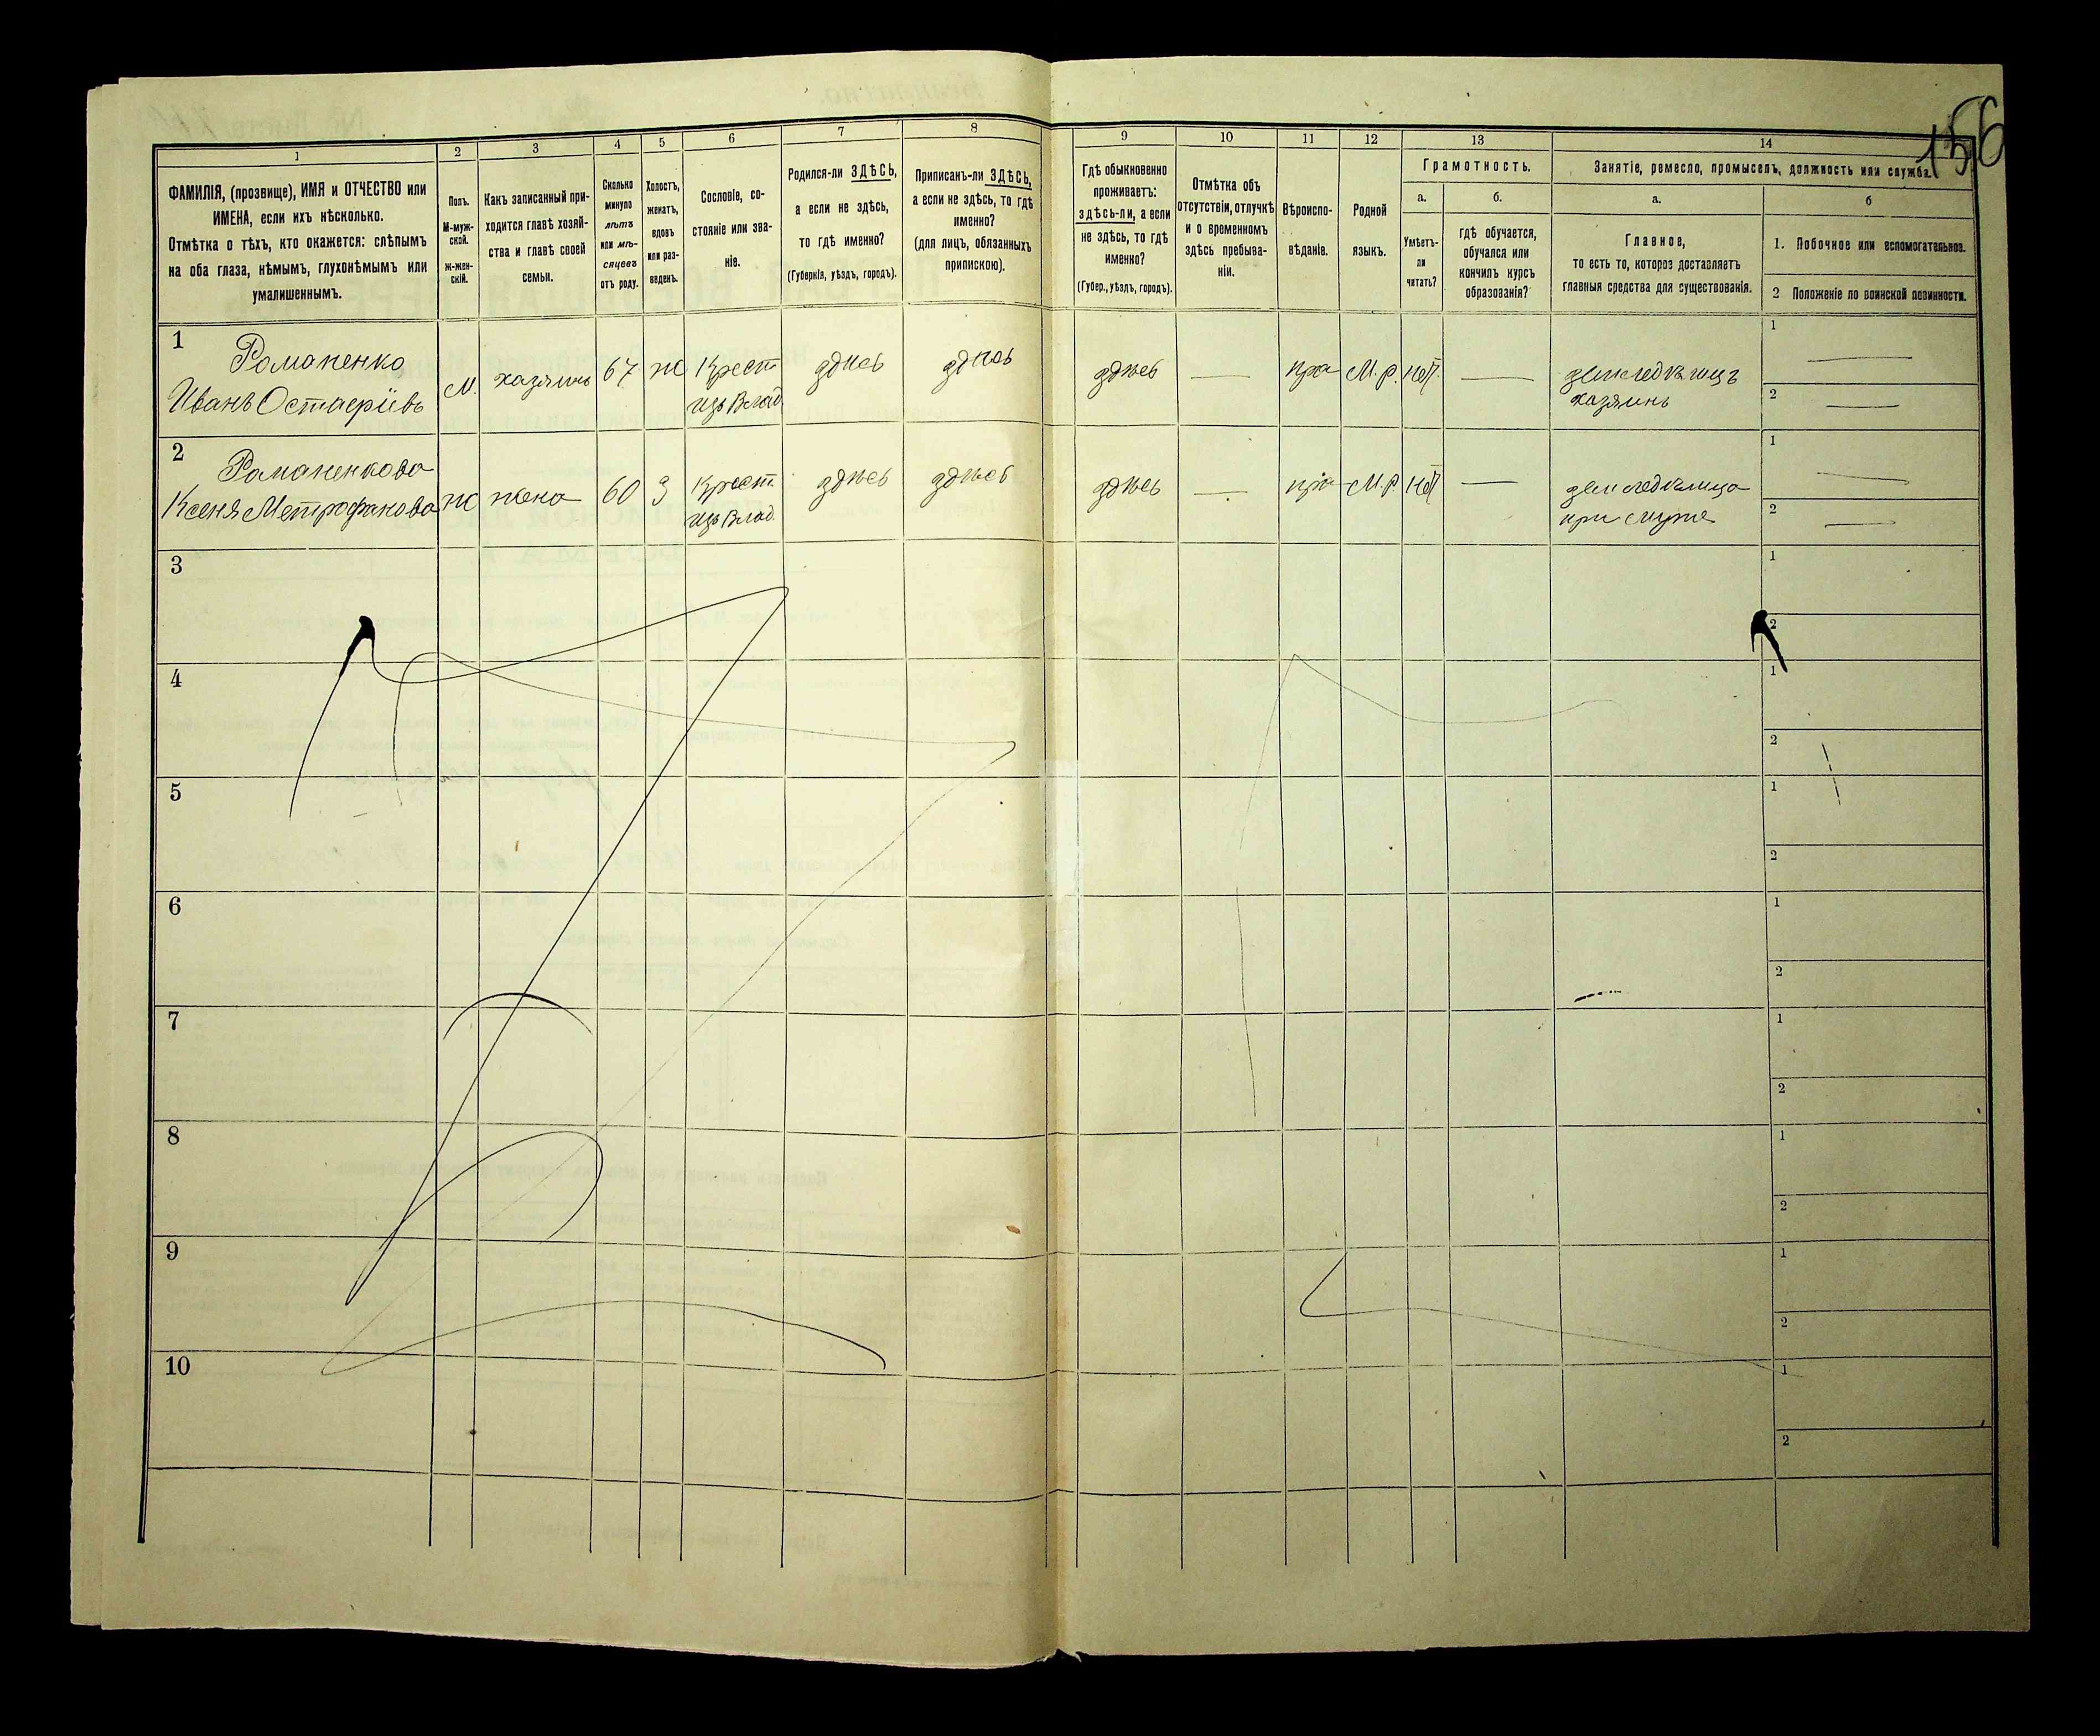 156
1 2 3 4 5 6 7 8 9 10 11 12 13 14
ФАМИЛІЯ, (прозвище), ИМЯ и ОТЧЕСТВО или
ИМЕНА, если ихъ нѣсколько.
Отмѣтка о тѣхъ, кто окажется: слѣпымъ
на оба глаза, нѣмымъ, глухонѣмымъ или
умалишеннымъ.
Полъ.
М-муж-
ской.
Ж-жен-
скій.
Какъ записанный при-
ходится главѣ хозяй-
ства и главѣ своей
семьи.
Сколько
минуло
лѣтъ
или мѣ-
сяцевъ
отъ роду.
Холостъ,
женатъ,
вдовъ
или раз-
веденъ.
Сословіе, со-
стояніе или зва-
ніе.
Родился-ли ЗДѢСЬ,
а если не здѣсь,
то гдѣ именно?
(Губернія, уѣздъ, городъ).
Приписанъ-ли ЗДѢСЬ,
а если не здѣсь, то гдѣ
именно?
(для лицъ, обязанныхъ
припискою).
Гдѣ обыкновенно
проживаетъ:
здѣсь-ли, а если
не здѣсь, то гдѣ
именно?
(Губер., уѣздъ, городъ).
Отмѣтка объ
отсутствіи, отлучкѣ
и о временномъ
здѣсь пребыва-
ніи.
Вѣроиспо-
вѣданіе.
Родной
языкъ.
Грамотность.
а. б.
Умѣетъ-
ли
читать?
гдѣ обучается,
обучался или
кончилъ курсъ
образованія?
Занятіе, ремесло, промыселъ, должность или служба.
а. б
Главное,
то есть то, которое доставляетъ
главныя средства для существованія.
1. Побочное или вспомогательное.
2 Положеніе по воинской повинности.
1 Романенко М. хазяинъ 67 Ж Крест здѣсь здѣсь здѣсь — пра М.р. нѣт — земледѣлецъ 1 —
Иванъ Остаеріевъ изъ Влад хазяинъ 2 —
2 Романенкова Ж жена 60 З Крест здѣсь здѣсь здѣсь — пра М.р. нѣт — 1 —
Ксеня Метрофанова изъ Влад. при мужѣ 2 —
3 1
2
4 1
2
5 1
2
6 1
2
7 1
2
8 1
2
9 1
2
10 1
2